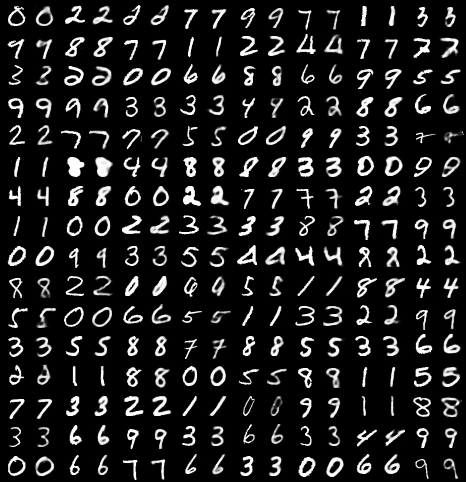 0 0 2 2 2 2 7 7 9 9 7 7 1 1 3 3
9 9 8 8 7 7 1 1 2 2 4 4 7 7 7 7
3 3 2 2 0 0 6 6 8 8 6 6 9 9 5 5
9 9 9 9 3 3 3 3 4 4 2 2 8 8 6 6
2 2 7 7 7 7 5 5 0 0 9 9 3 3 7
1 1 8 8 4 4 8 8 8 8 3 3 0 0 9 9
4 4 8 8 0 0 2 2 7 7 7 7 2 2 3 3
1 1 0 0 2 2 3 3 3 3 8 8 7 7 9 9
0 0 9 9 3 3 5 5 4 4 4 4 8 8 2 2
8 8 2 2 0 0 5 5 1 1 8 8 4 4
5 5 0 0 6 6 5 5 1 1 3 3 2 2 9 9
3 3 5 5 8 8 7 7 8 8 5 5 3 3 6 6
2 2 1 1 8 8 0 0 5 5 8 8 1 1 5 5
7 7 3 3 2 2 1 1 0 0 9 9 1 1 8 8
3 3 6 6 9 9 3 3 6 6 3 3 4 4 9 9
0 0 6 6 7 7 6 6 3 3 0 0 6 6 9 9